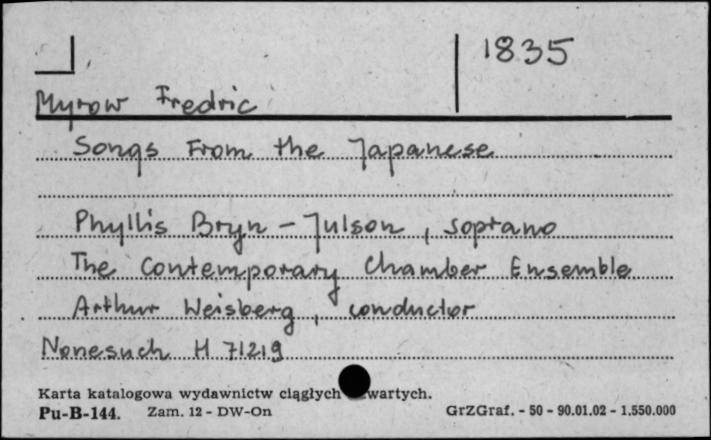 1835
Myrow Fredric
Songs From the Japanese
Phyllis Bryn - Julson, soprano
The Contemporary Chamber Ensemble
Arthur Weisberg, conductor
Nonesuch H 71219
Karta katalogowa wydawnictw ciągłych wartych.
Pu-B-144. Zam. 12 - DW-On GrZGraf. - 50 - 90.01.02 - 1.550.000